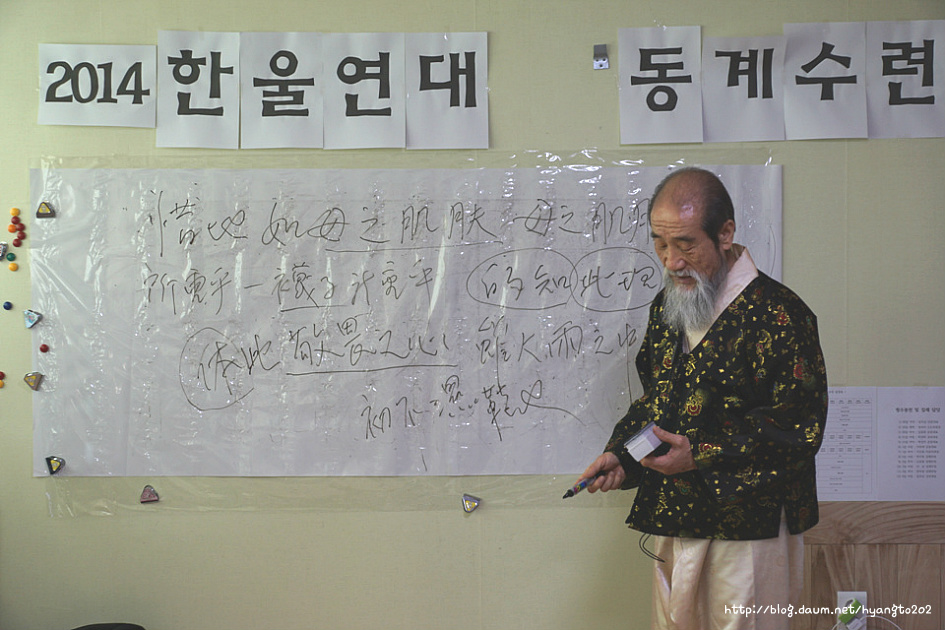 2014 한울연대 동계수련
惜地 如母之肌膚 母之肌
所重乎一襪子所重乎 的知此理
体此敬畏之心 雖大雨之中
初不濕鞋也
http://blog.daum.net/hyangto202